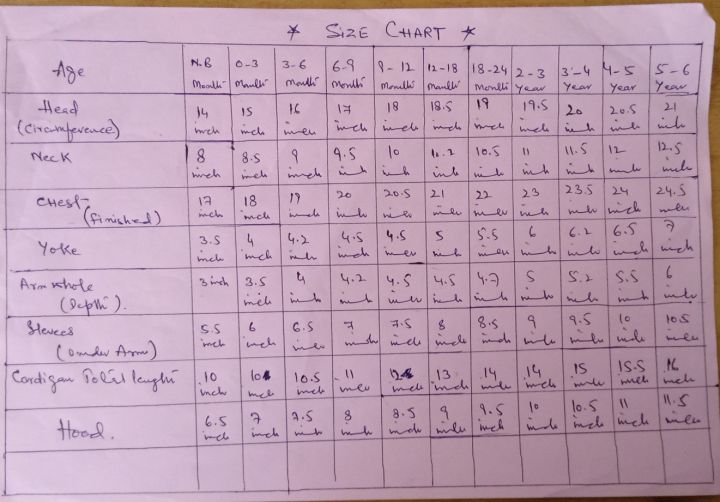 * SIZE CHART *
Age N.B Month 0-3 Month 3-6 Month 6-9 Month 9-12 Month 12-18 Month 18-24 Month 2-3 Year 3-4 Year 4-5 Year 5-6 Year
Head (Circumference) 14 inch 15 inch 16 inch 17 inch 18 inch 18.5 inch 19 inch 19.5 inch 20 inch 20.5 inch 21 inch
Neck 8 inch 8.5 inch 9 inch 9.5 inch 10 inch 10.2 inch 10.5 inch 11 inch 11.5 inch 12 inch 12.5 inch
Chest (finished) 17 inch 18 inch 19 inch 20 inch 20.5 inch 21 inch 22 inch 23 inch 23.5 inch 24 inch 24.5 inch
Yoke 3.5 inch 4 inch 4.2 inch 4.5 inch 4.5 inch 5 inch 5.5 inch 6 inch 6.2 inch 6.5 inch 7 inch
Armwhole (Depth). 3 inch 3.5 inch 4 inch 4.2 inch 4.5 inch 4.5 inch 4.7 inch 5 inch 5.2 inch 5.5 inch 6 inch
Slevees (Under Arm) 5.5 inch 6 inch 6.5 inch 7 inch 7.5 inch 8 inch 8.5 inch 9 inch 9.5 inch 10 inch 10.5 inch
Cardigan lenght 10 inch 10 inch 10.5 inch 11 inch 12 inch 13 inch 14 inch 14 inch 15 inch 15.5 inch 16 inch
Hood. 6.5 inch 7 inch 7.5 inch 8 inch 8.5 inch 9 inch 9.5 inch 10 inch 10.5 inch 11 inch 11.5 inch